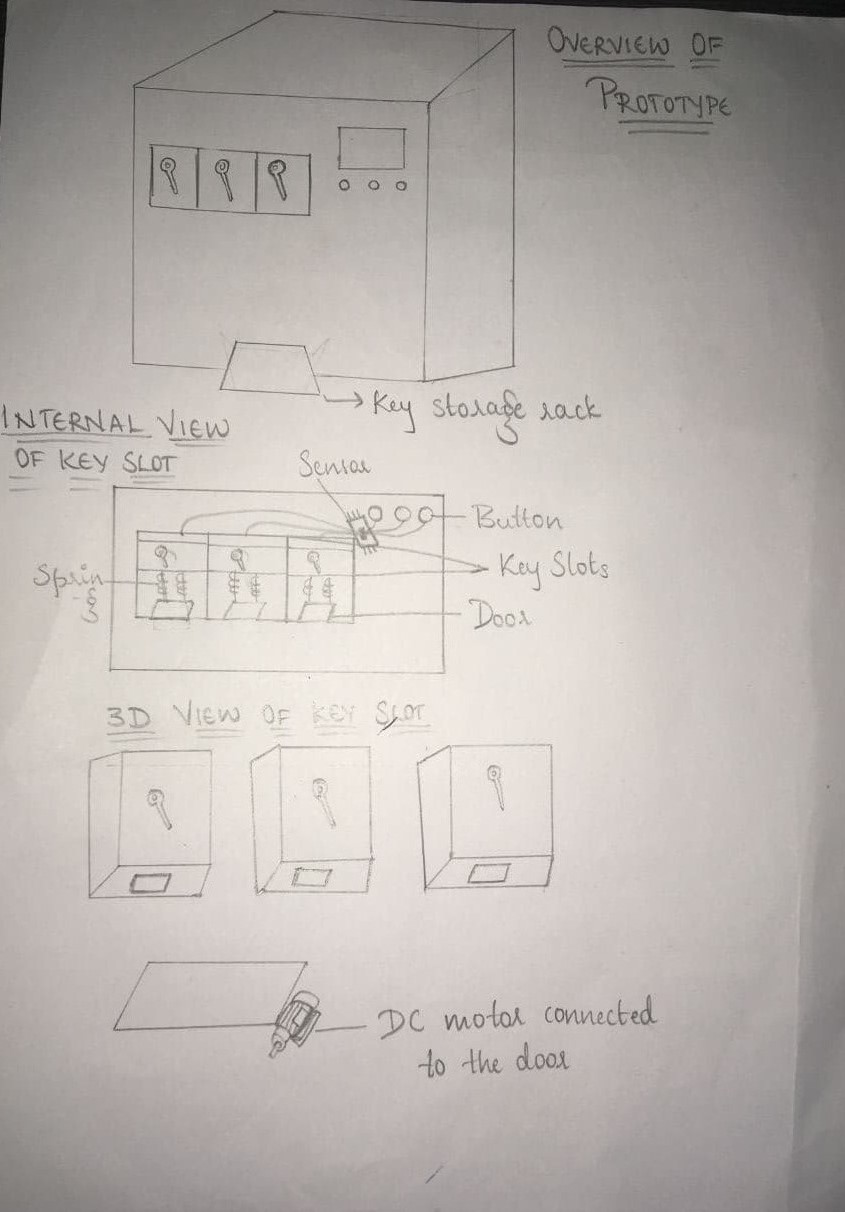 OVERVIEW OF
PROTOTYPE
Key storage rack
INTERNAL VIEW
OF KEY SLOT
Sensor
Button
Key Slots
Spring
Door
3D VIEW OF KEY SLOT
DC motor connected
to the door